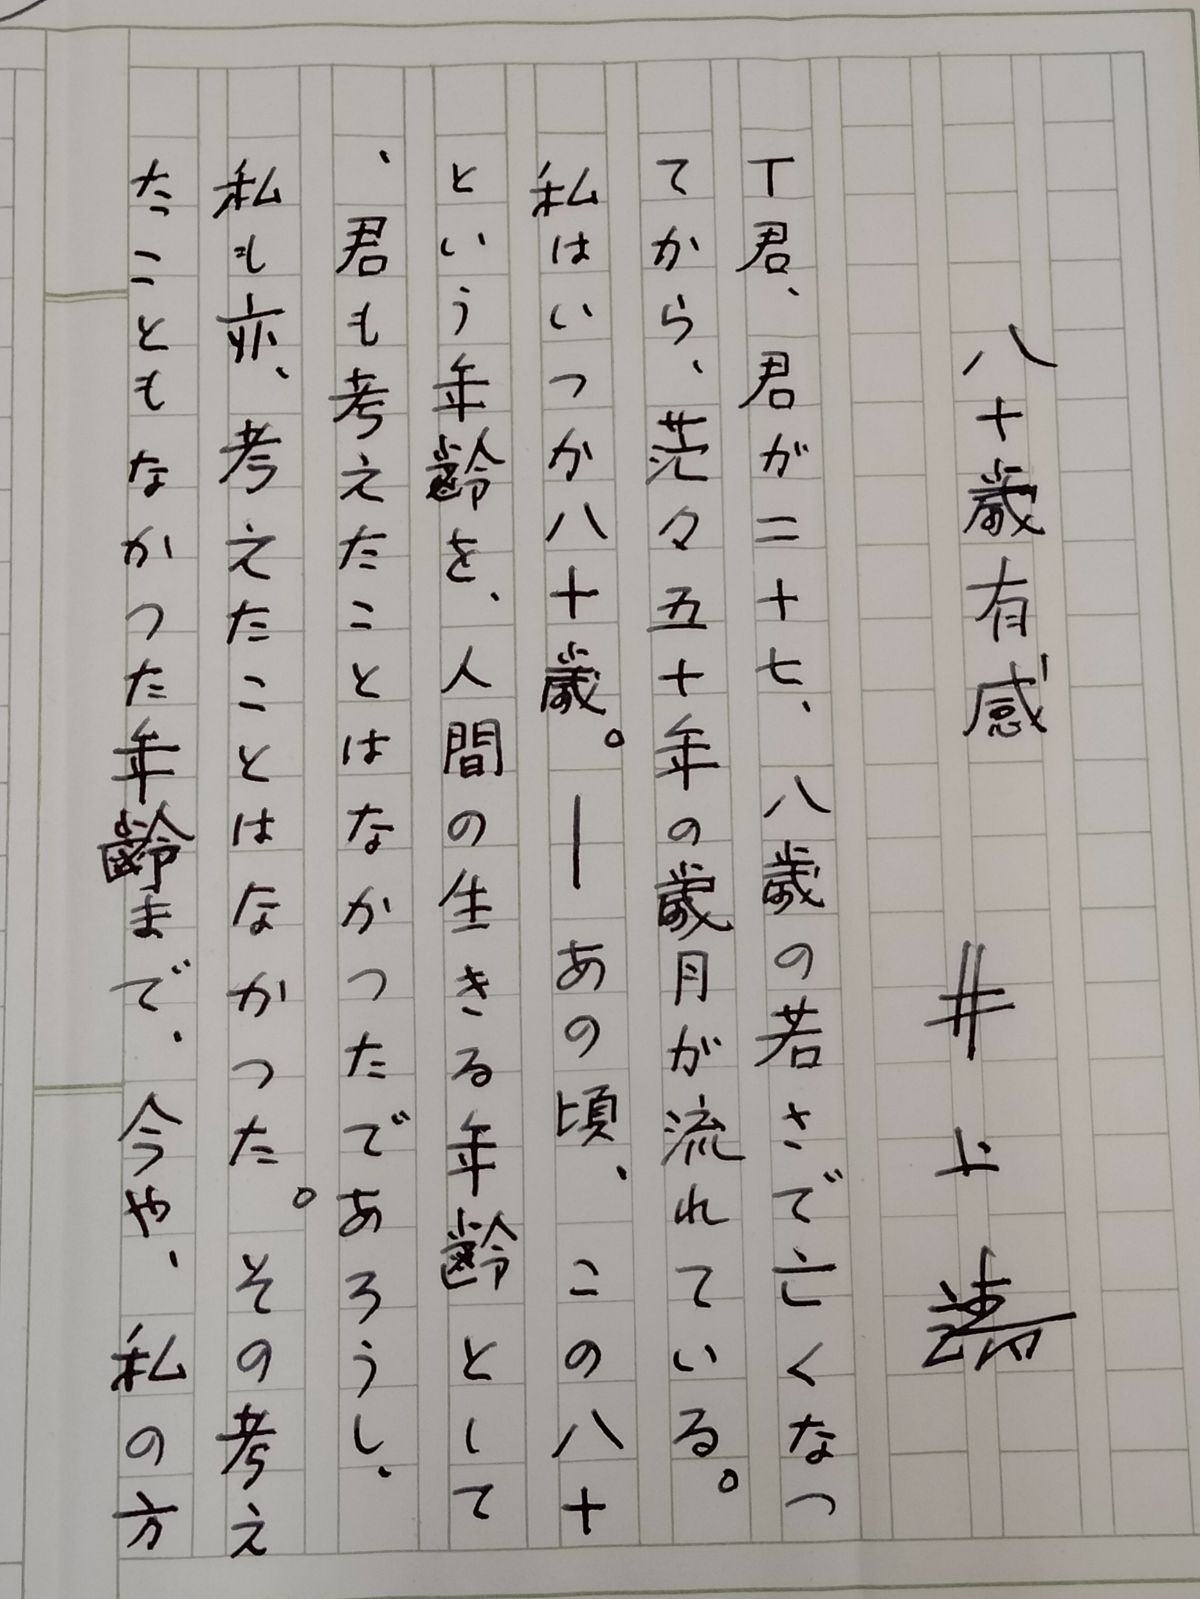 八十歳有感　井上靖
T君、君が二十七、八歳の若さで亡くなつ
てから、茫々五十年の歳月が流れている。
私はいつか八十歳。―あの頃、この八十
という年齢を、人間の生きる年齢として
、君も考えたことはなかつたであろうし、
私も亦、考えたことはなかつた。その考え
たこともなかつた年齢まで、今や、私の方